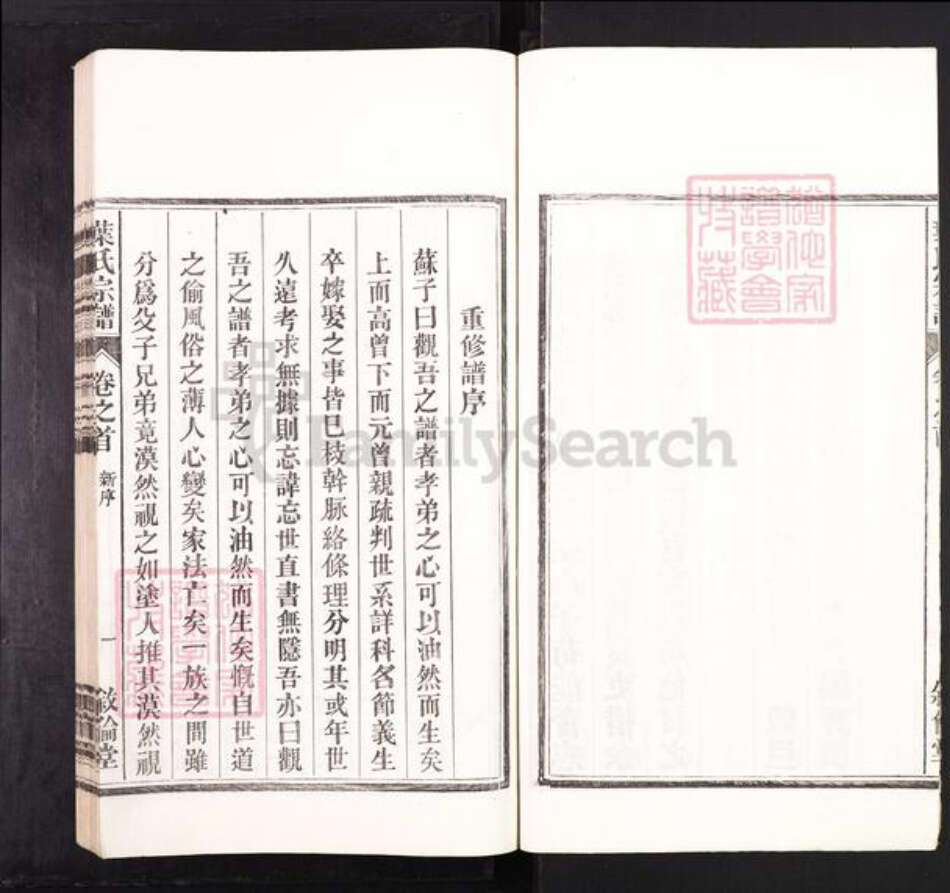 重修譜序
蘇子曰觀吾之譜者孝弟之心可以油然而生矣
上而高曾下而元曾親疏判世系詳科名節義生
卒嫁娶之事皆已枝幹脉絡條理分明其或年世
久遠考求無據則忘諱忘世直書無隱吾亦曰觀
吾之譜者孝弟之心可以油然而生矣慨自世道
之偷風俗之薄人心變矣家法亡矣一族之間雖
分爲父子兄弟竟漠然視之如塗人推其漠然視
葉氏宗譜
卷之首
新序
一
敘倫堂
FamilySearch